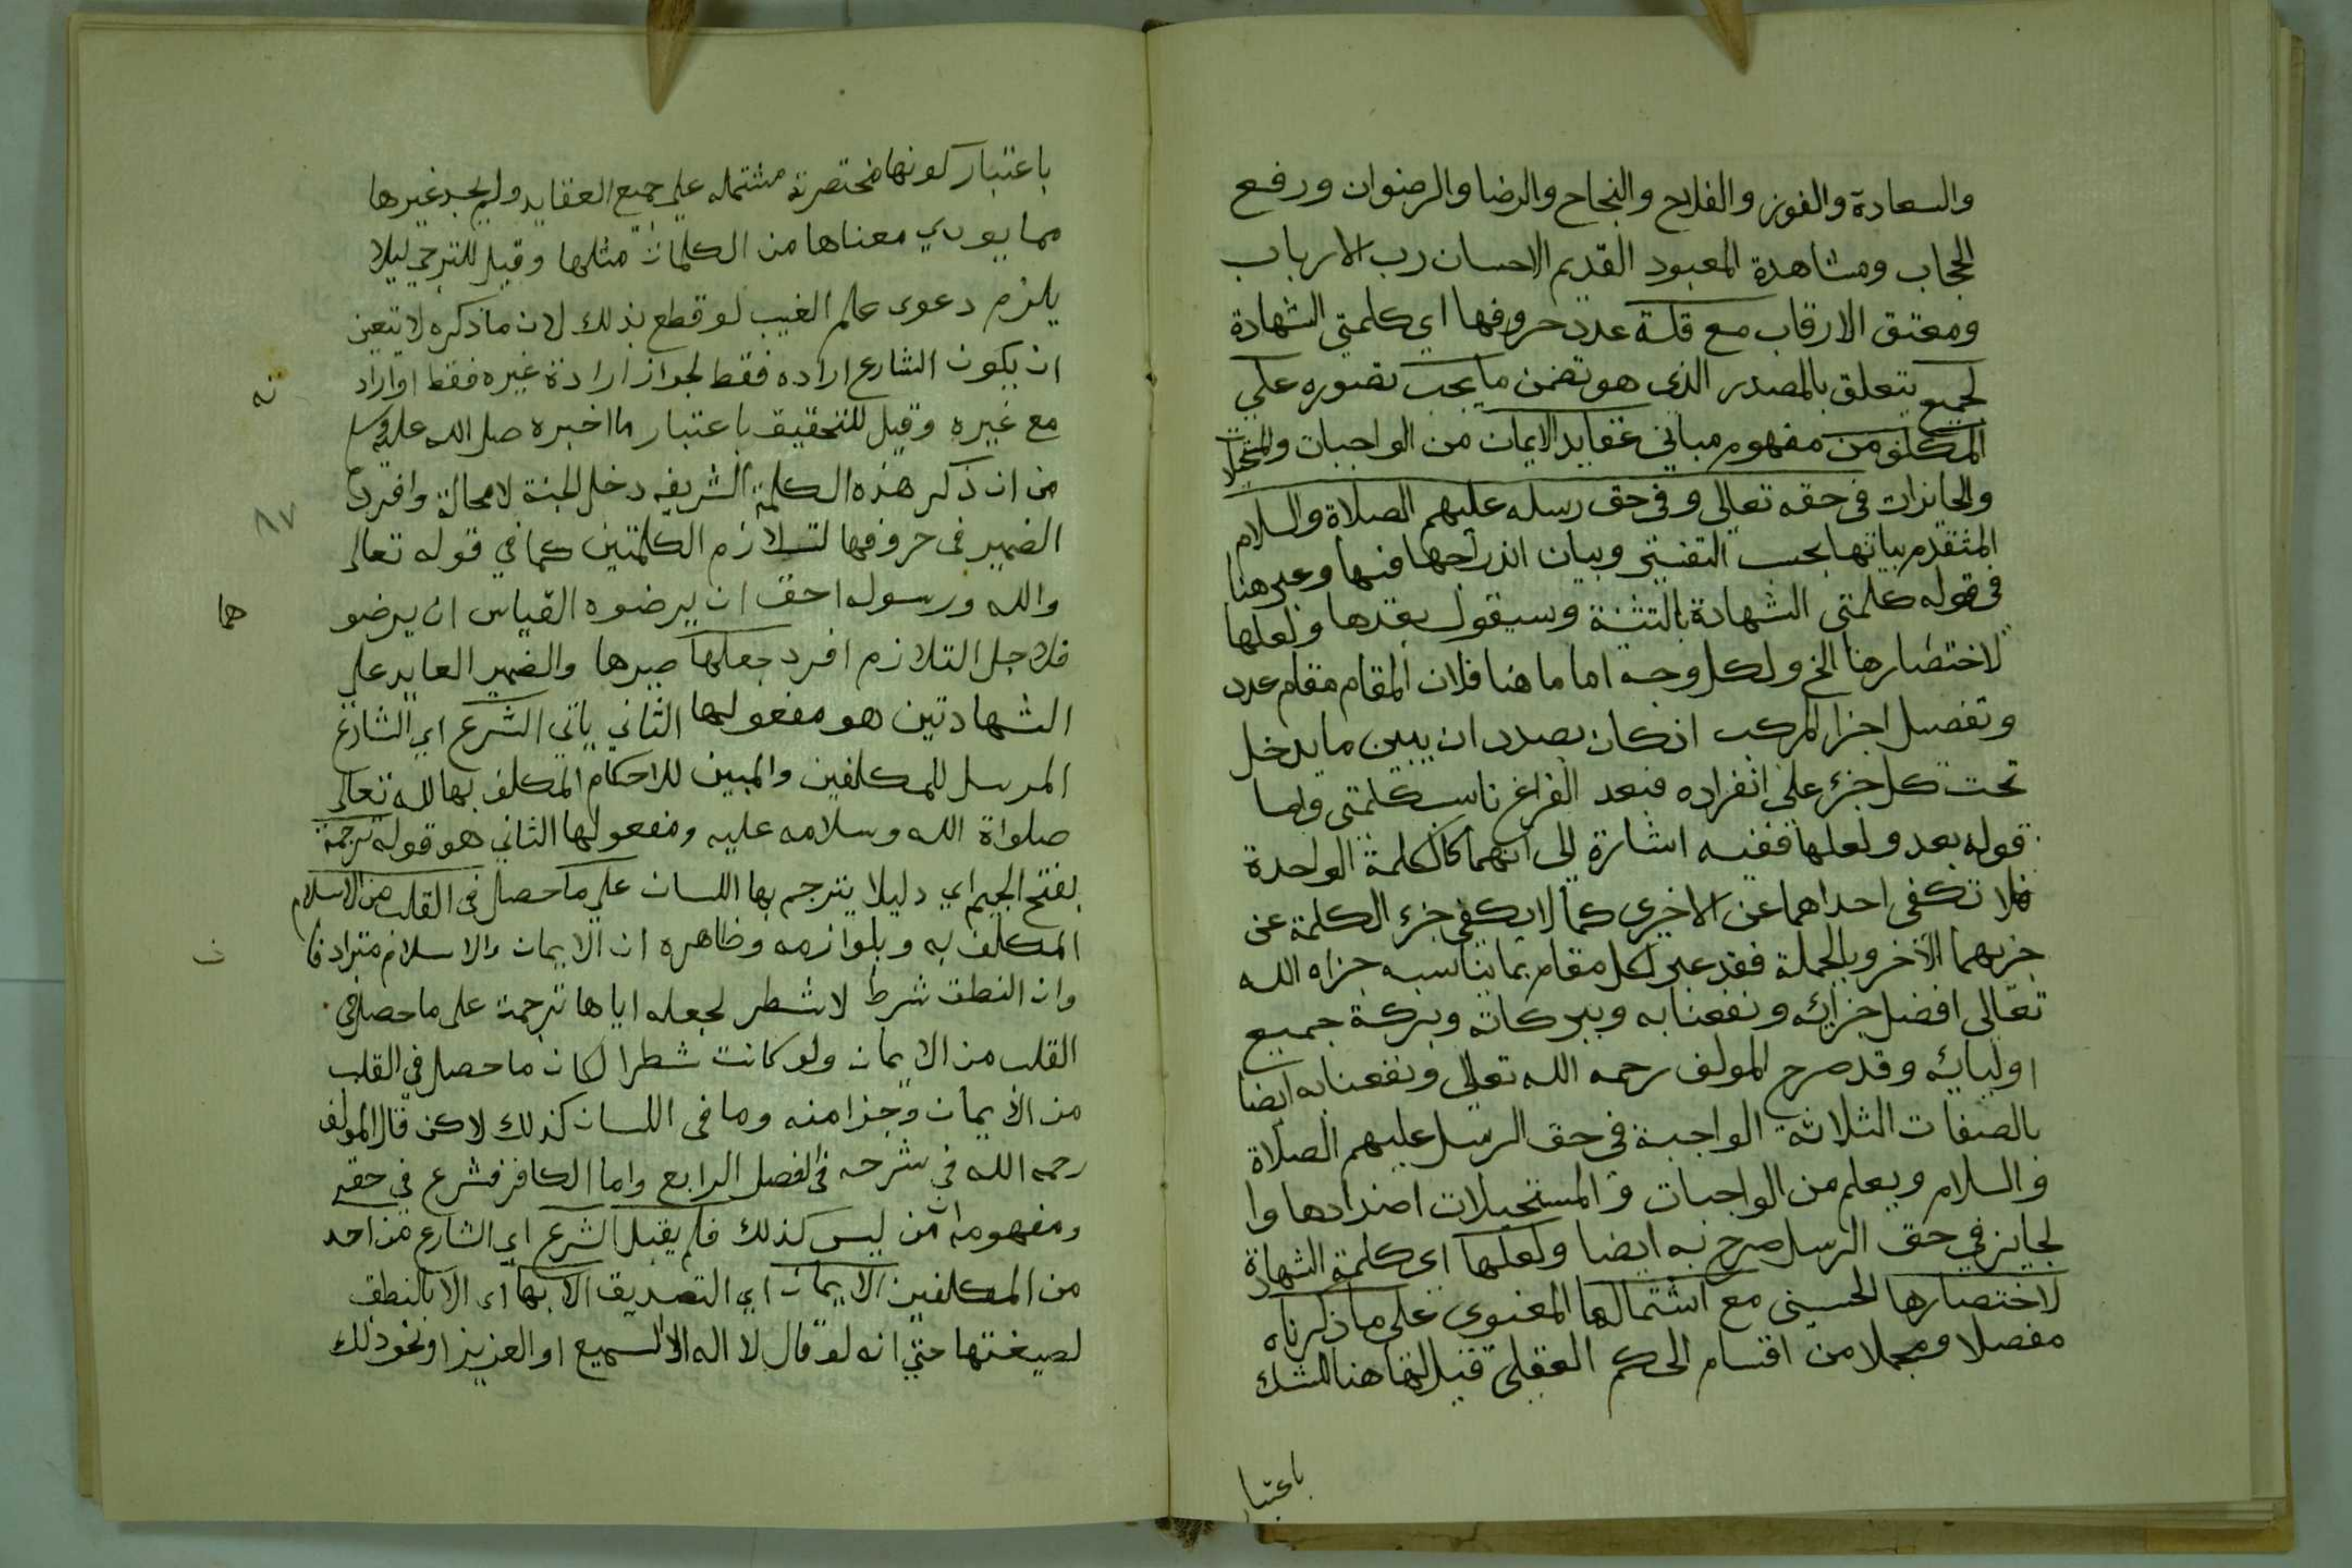 والسعادة والفوز والفلاح والنجاح والرضا والرضوان ورفع
الحجاب ومشاهدة المعبود القديم الاحسان رب الارباب
ومعتق الارقاب مع قلة عدد حروفها اي كلمتي الشهادة
لجميع يتعلق بالمصدر الذي هو تضمن ما يجب تصوره على
المكلف من مفهوم مباني عقايد الايمان من الواجبات والمستحيلات
والجايزات في حقه تعالى وفي حق رسله عليهم الصلاة والسلام
المتقدم بياتها بحسب وبيان اندراجها فيها وعبر هنا
في قوله كلمتي الشهادة بالتثنة وسيقول بعدها ولعلها
لاختصارها الخ ولكل وجه اما ما هنا فلان المقام مقام عدد
وتفصيل اجزا المركب اذ كان بصدد ان يبين ما يدخل
تحت كل جزء على انفراده فبعد الفراغ ناسب كلمتي واما
قوله بعد ولعلها ففيه اشارة الى انهما كالكلمة الواحدة
فلا تكفى احداهما عن الاخرى كما لا يكفى جزء الكلمة عن
جزيهما الآخر وبالجملة فقد عبر لكل مقام بما يناسبه جزاه الله
تعالى افضل جزايه ونفعنا به وببركاته وبركة جميع
اوليائه وقد صرح المولف رحمه الله تعالى ونفعنا به ايضا
بالصفات الثلاثة الواجبة في حق الرسل عليهم الصلاة
والسلام ويعلم من الواجبات والمستحيلات اضدادها وا
لجايز في حق الرسل صرح به ايضا ولعلها اي كلمة الشهادة
لاختصارها الحسيني مع اشتمالها المعنوي على ما ذكرناه
مفصلا ومجملا من اقسام الحكم العقلي قيل انها هنا للشك
باعتبار
باعتبار كونها مختصرة مشتمله على جميع العقايد ولم يجد غيرها
مما يودي معناها من الكلمات مثلها وقيل للترجي ليلا
يلزم دعوى علم الغيب لو قطع بذلك لان ما ذكره لا يتعين
ان يكون الشارع اراده فقط لجواز ارادة غيره فقط او اراد
نه
مع غيره وقيل للتحقيق باعتبار ما اخبره صلى الله عليه وسلم
من ان ذكر هذه الكلمة الشريفه دخل الجنة لا محالة وافرد
الضمير في حروفها لتلازم الكلمتين كما في قوله تعالى
والله ورسوله احق ان يرضوه القياس ان يرضو
هما
فلاجل التلازم افرد جعلها صيرها والضمير العايد على
الشهادتين هو مفعولها الثاني ياتي الشرع اي الشارع
المرسل للمكلفين والمبين للاحكام المكلف بها لله تعالى
صلواة الله وسلامه عليه ومفعولها الثاني هو قوله ترجمة
بفتح الجيم اي دليلا يترجم بها اللسان على ما حصل في القلب من الاسلام
المكلف به وبلوازمه وظاهره ان الايمان والاسلام مترادفا
ن
وان النطق شرط لا شطر لجعله اياها ترجمة على ما حصل في
القلب من الايمان ولو كانت شطرا لكان ما حصل في القلب
من الايمان وجزا منه وما في اللسان كذلك لاكن قال المولف
رحمه الله في شرحه في الفصل الرابع واما الكافر فشرع في حقه
ومفهومه ان من ليس كذلك فلم يقبل الشرع اي الشارع من احد
من المكلفين الايمان اي التصديق الا بها اي الا بالنطق
لصيغتها حتي انه لو قال لا اله الا السميع او العزيز او نحو ذلك